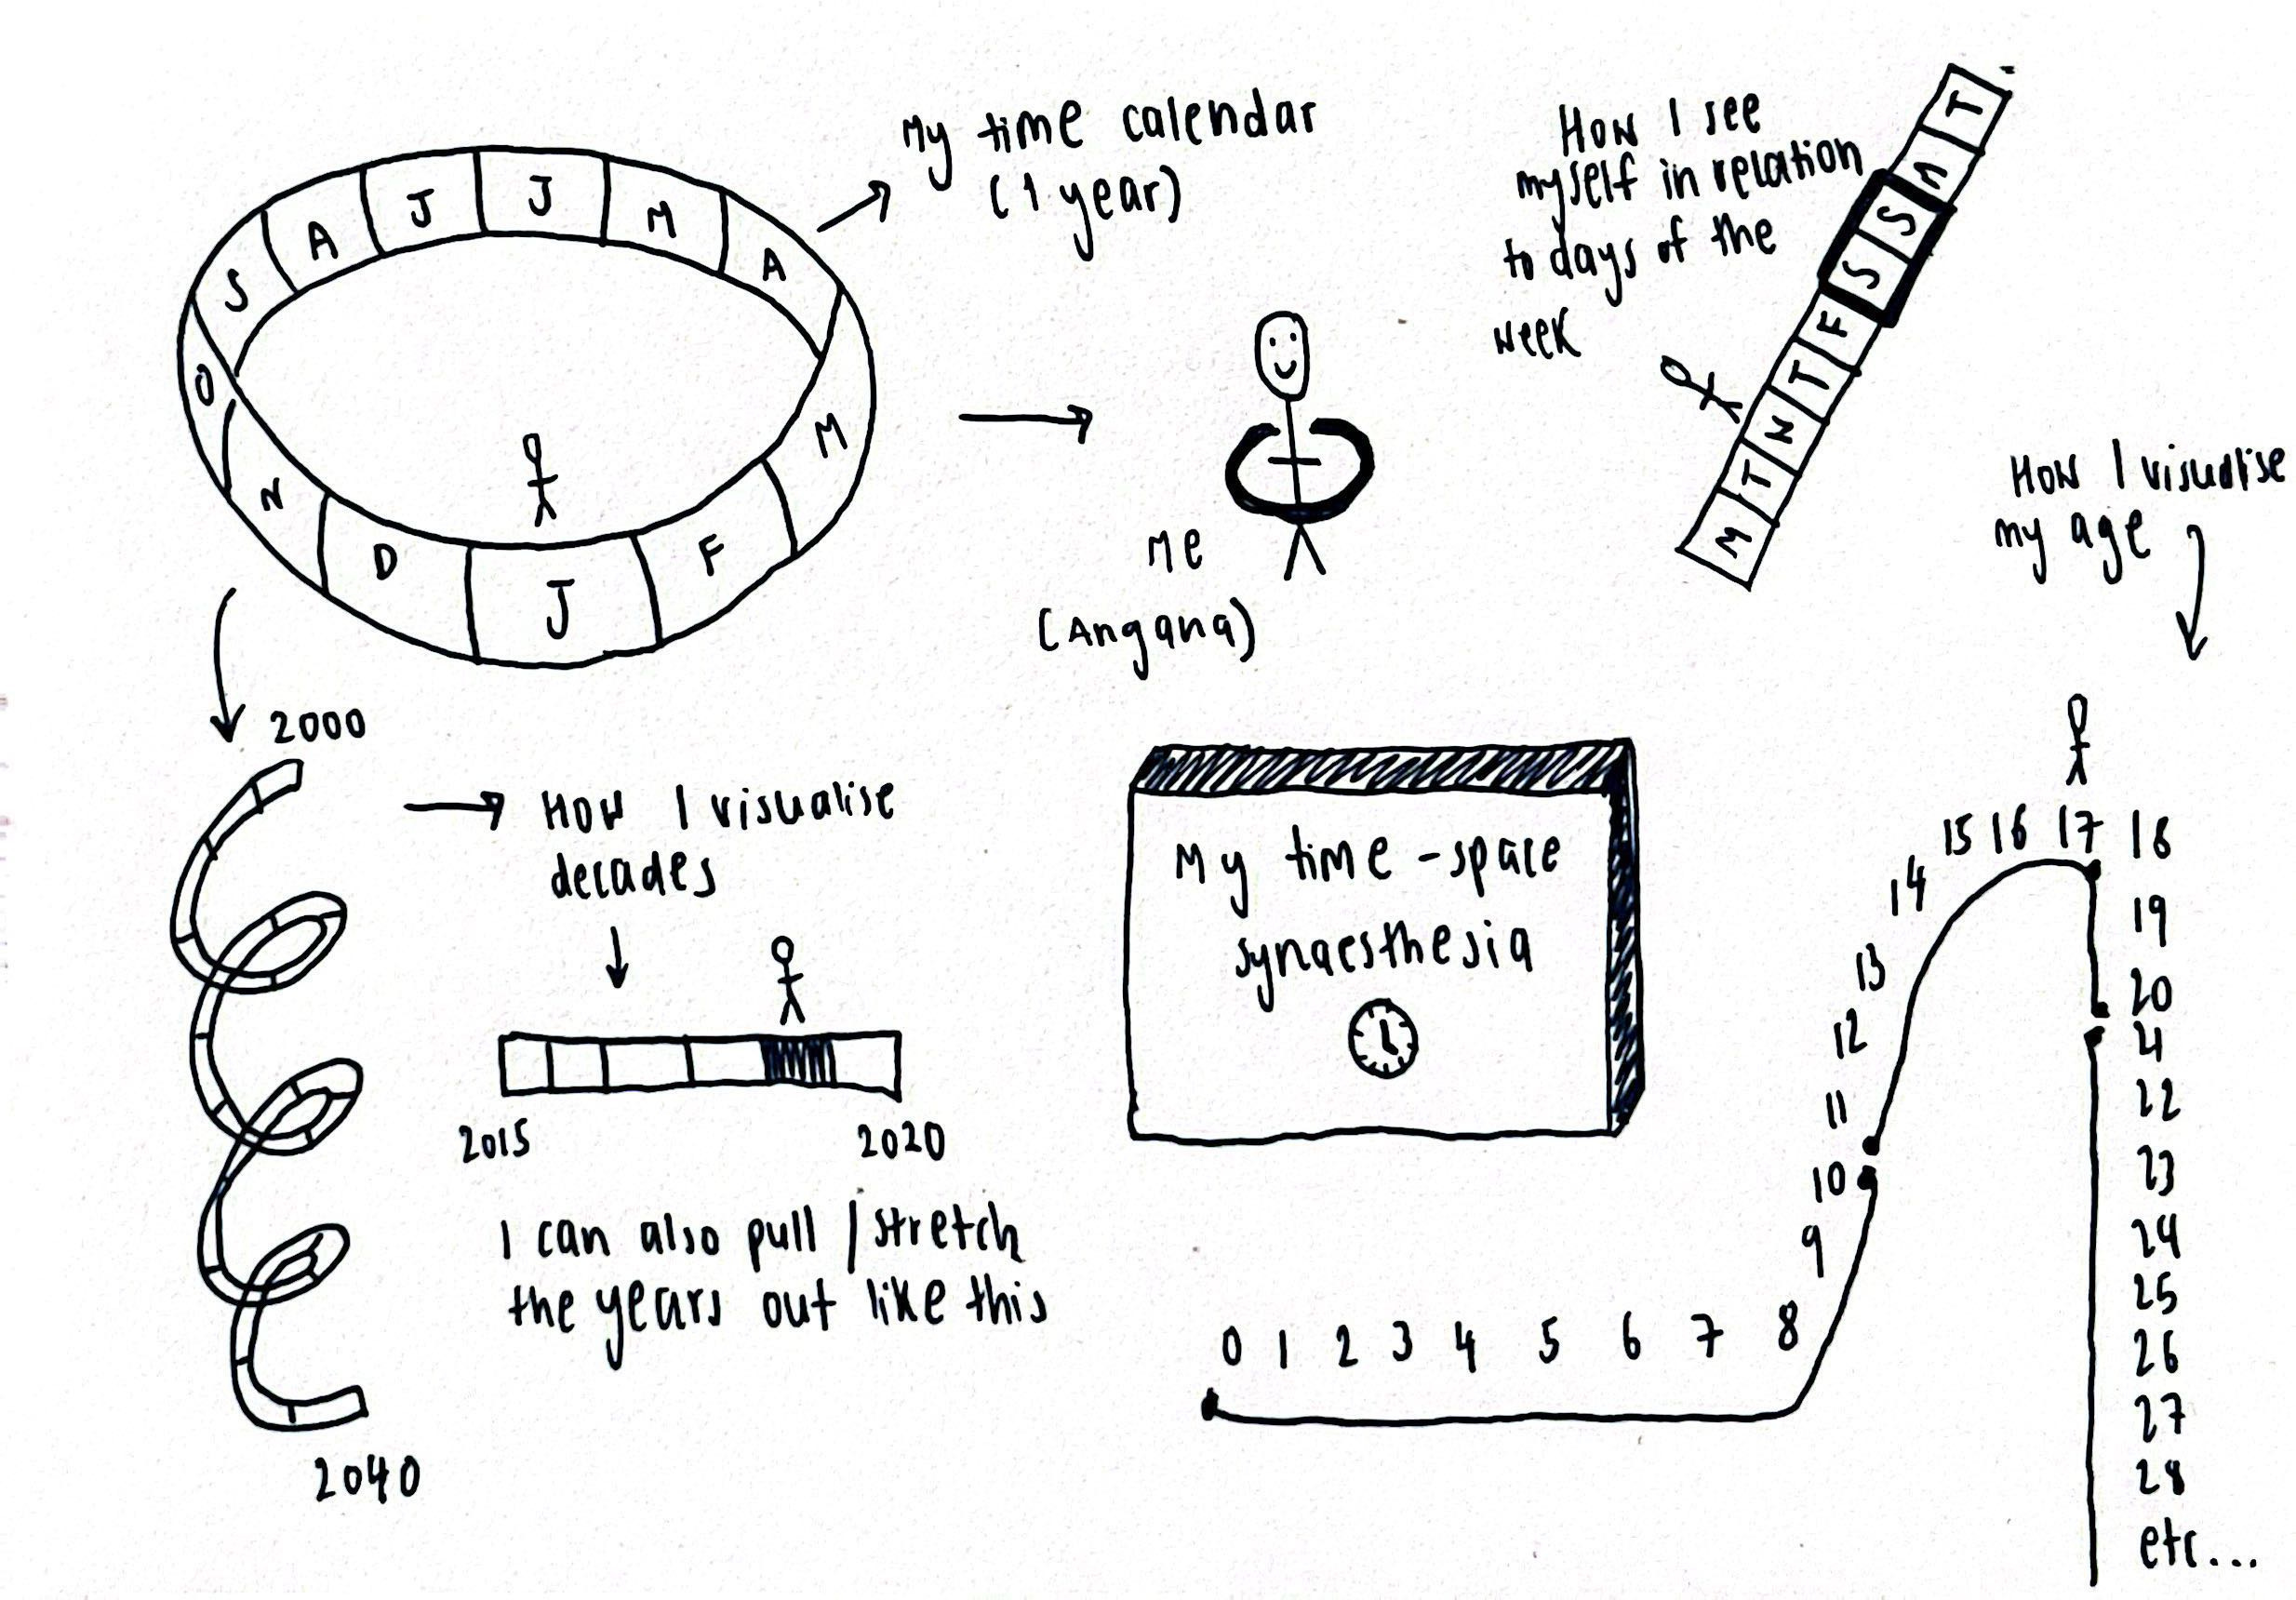 My time calendar
(1 year)
J
F
M
A
M
J
J
A
S
O
N
D
Me
(Angana)
How I see
myself in relation
to days of the
week
M T W T F S S M T
How I visualise
my age
2000
2040
How I visualise
decades
2015 2020
I can also pull / stretch
the years out like this
My time-space
synaesthesia
0 1 2 3 4 5 6 7 8
9
10
11
12
13
14
15 16 17 18
19
20
21
22
23
24
25
26
27
28
etc...